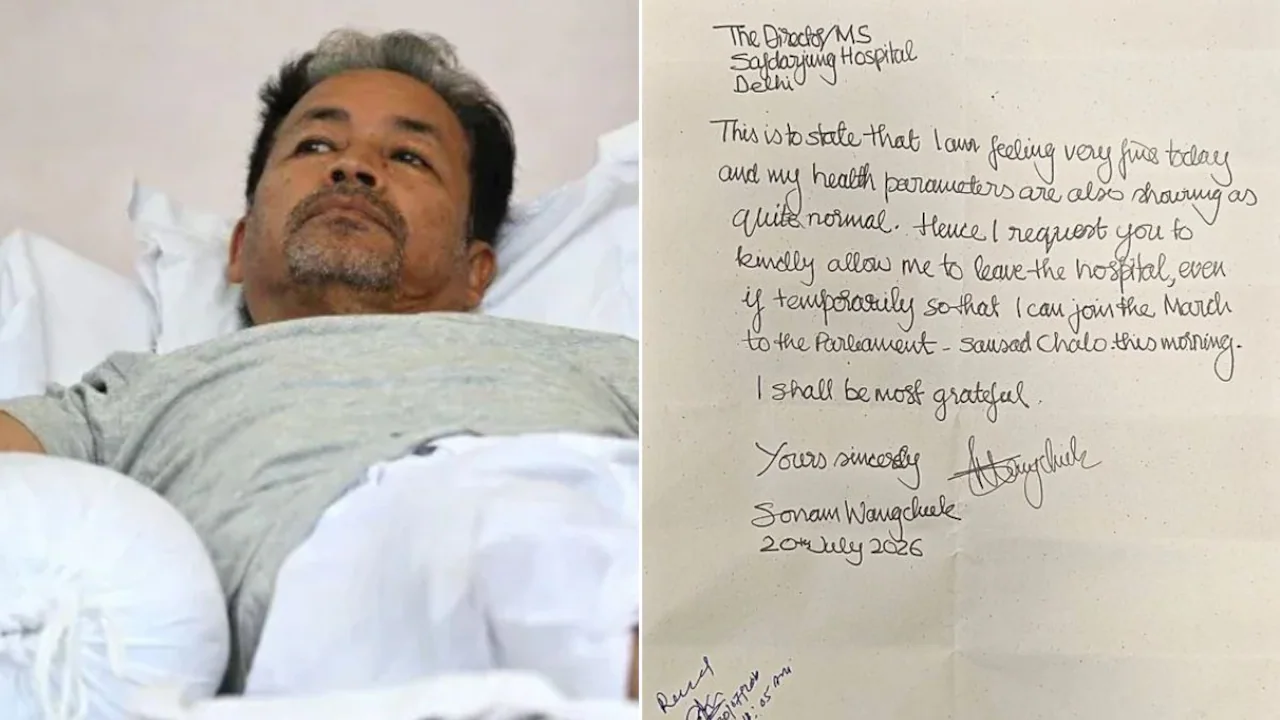 The Director/MS
Safdarjung Hospital
Delhi
This is to state that I am feeling very fine today
and my health parameters are also showing as
quite normal. Hence I request you to
kindly allow me to leave the hospital, even
if temporarily so that I can join the March
to the Parliament - Sansad Chalo this morning.
I shall be most grateful.
Yours sincerely
Sonam Wangchuk
20th July 2026
Recd